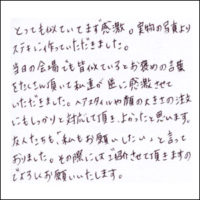 とっても似ていてまず感激。実物の写真より
ステキに作っていただきました。
当日の会場でも皆似ているとお褒めの言葉
をたくさん頂いて私達が逆に感激させて
いただきました。ヘアスタイルや顔の大きさの注文
にもしっかりと対応して頂き、よかったと思います。
友人たちも「私もお願いしたい」と言って
おりました。その際にはご紹介させて頂きますの
でよろしくお願いいたします。